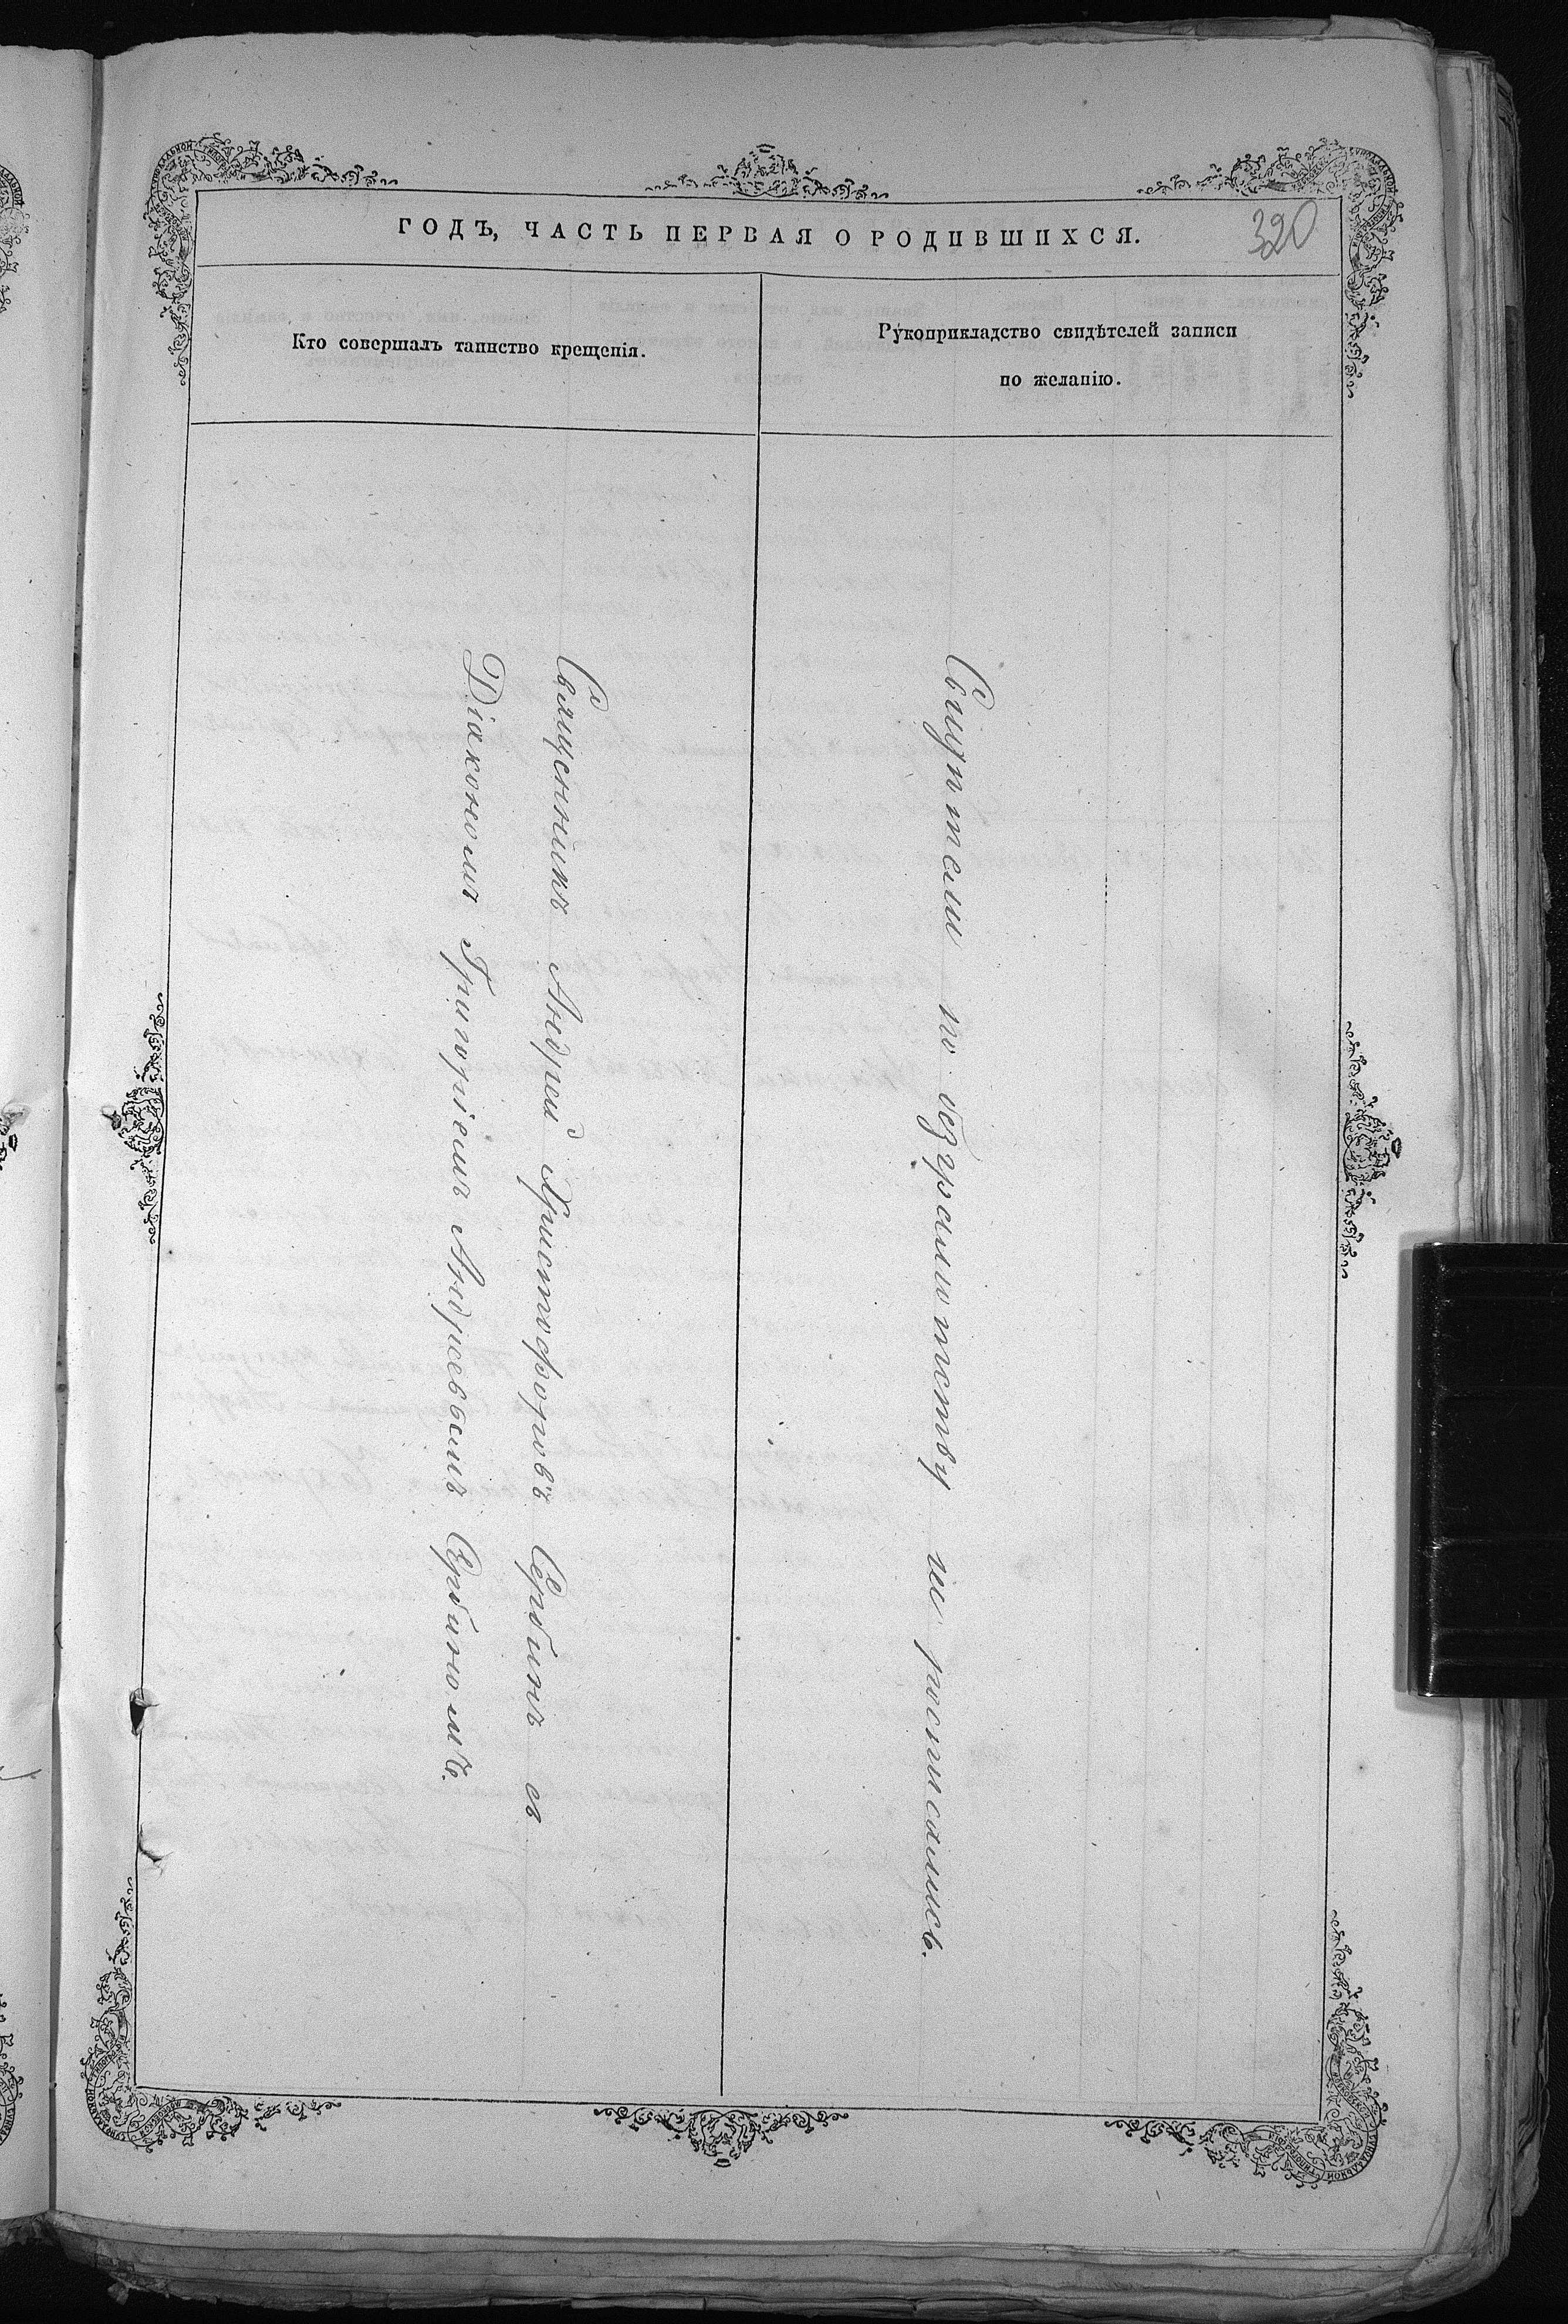 ГОДЪ, ЧАСТЬ ПЕРВАЯ О РОДИВШИХСЯ.
320
Кто совершалъ таинство крещенія.
Рукоприкладство свидѣтелей записи
по желанію.
Священникъ Андрей Христофоровъ Сербинъ съ
Діакономъ Григоріемъ Андреевымъ Сербиномъ.
по безграмотству не росписались.